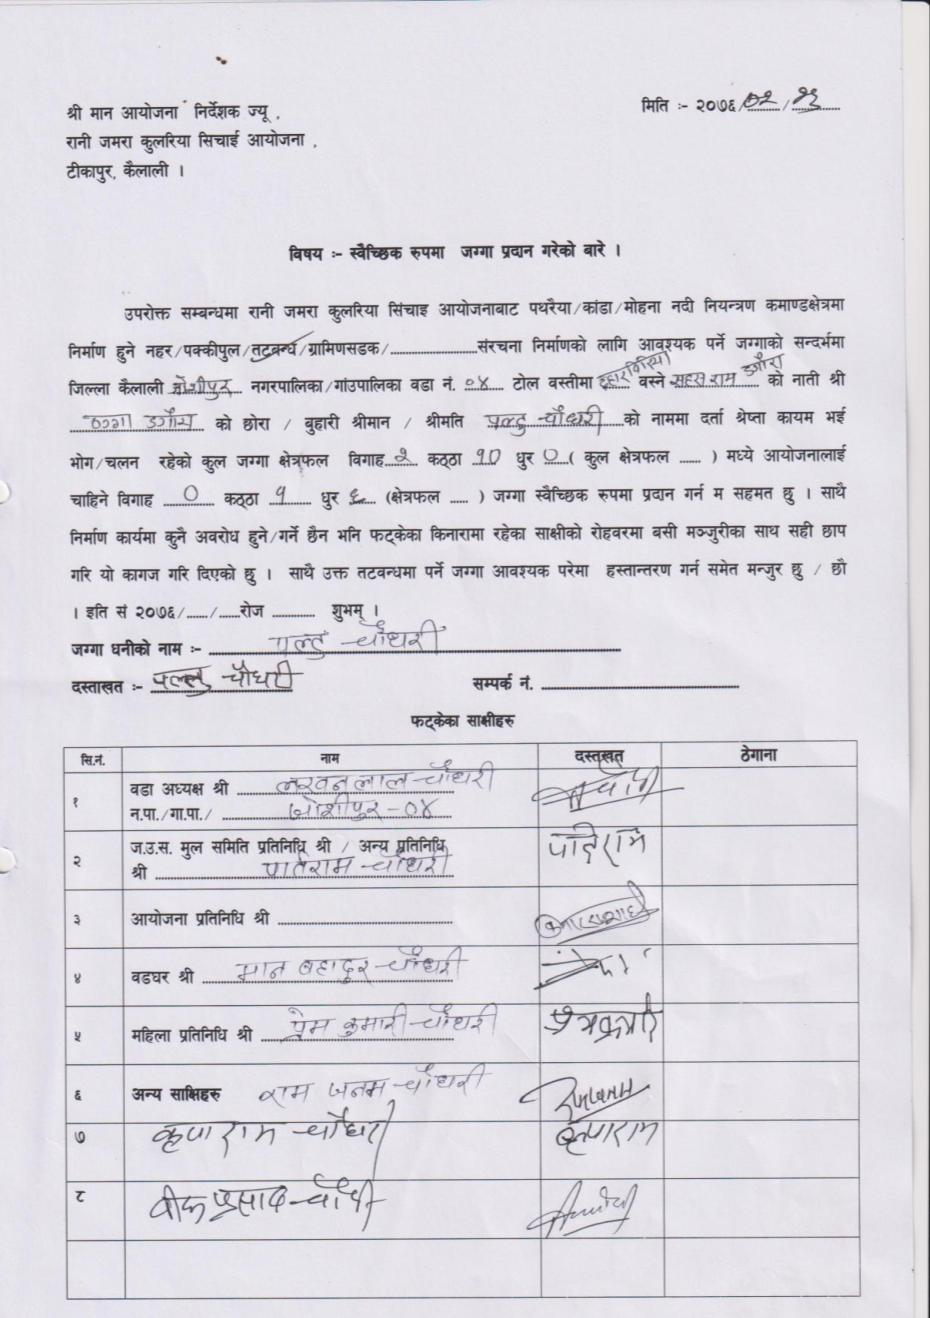 श्री मान आयोजना निर्देशक ज्यू ,
मिति :- २०७६/०२/२६
रानी जमरा कुलरिया सिचाई आयोजना ,
टीकापुर, कैलाली ।
विषय :- स्वैच्छिक रुपमा जग्गा प्रदान गरेको बारे ।
उपरोक्त सम्बन्धमा रानी जमरा कुलरिया सिंचाइ आयोजनाबाट पथरैया/कांडा/मोहना नदी नियन्त्रण कमाण्डक्षेत्रमा
निर्माण हुने नहर/पक्कीपुल/तटबन्ध/ग्रामिणसडक/........................संरचना निर्माणको लागि आवश्यक पर्ने जग्गाको सन्दर्भमा
जिल्ला कैलाली जोशीपुर नगरपालिका/गांउपालिका वडा नं. ०४ टोल वस्तीमा वस्ने सहस राम डगौरा को नाती श्री
ठग्गा डगौरा को छोरा / बुहारी श्रीमान / श्रीमति पल्टु चौधरी को नाममा दर्ता श्रेष्ता कायम भई
भोग/चलन रहेको कुल जग्गा क्षेत्रफल विगाह २ कठ्ठा १० धुर ० ( कुल क्षेत्रफल ...... ) मध्ये आयोजनालाई
चाहिने विगाह ० कठ्ठा १ धुर ६ (क्षेत्रफल ..... ) जग्गा स्वैच्छिक रुपमा प्रदान गर्न म सहमत छु । साथै
निर्माण कार्यमा कुनै अवरोध हुने/गर्ने छैन भनि फट्केका किनारामा रहेका साक्षीको रोहवरमा बसी मञ्जुरीका साथ सही छाप
गरि यो कागज गरि दिएको छु । साथै उक्त तटबन्धमा पर्ने जग्गा आवश्यक परेमा हस्तान्तरण गर्न समेत मन्जुर छु / छौ
। इति सं २०७६/....../......रोज ............ शुभम् ।
जग्गा धनीको नाम :- पल्टु चौधरी
दस्ताखत :- पल्टु चौधरी सम्पर्क नं. ............
फट्केका साक्षीहरु
सि.नं. नाम दस्तखत ठेगाना
१ वडा अध्यक्ष श्री लखन लाल चौधरी
न.पा./गा.पा./ जोशीपुर - ०४
२ ज.उ.स. मुल समिति प्रतिनिधि श्री / अन्य प्रतिनिधि
श्री पातीराम चौधरी पातीराम
३ आयोजना प्रतिनिधि श्री ............
४ वडघर श्री मान बहादुर चौधरी
५ महिला प्रतिनिधि श्री प्रेम कुमारी चौधरी प्रेमकुमारी
६ अन्य साक्षिहरु राम जनम चौधरी रामजनम
७ कृपा राम चौधरी कृपाराम
८ प्रसाद चौधरी